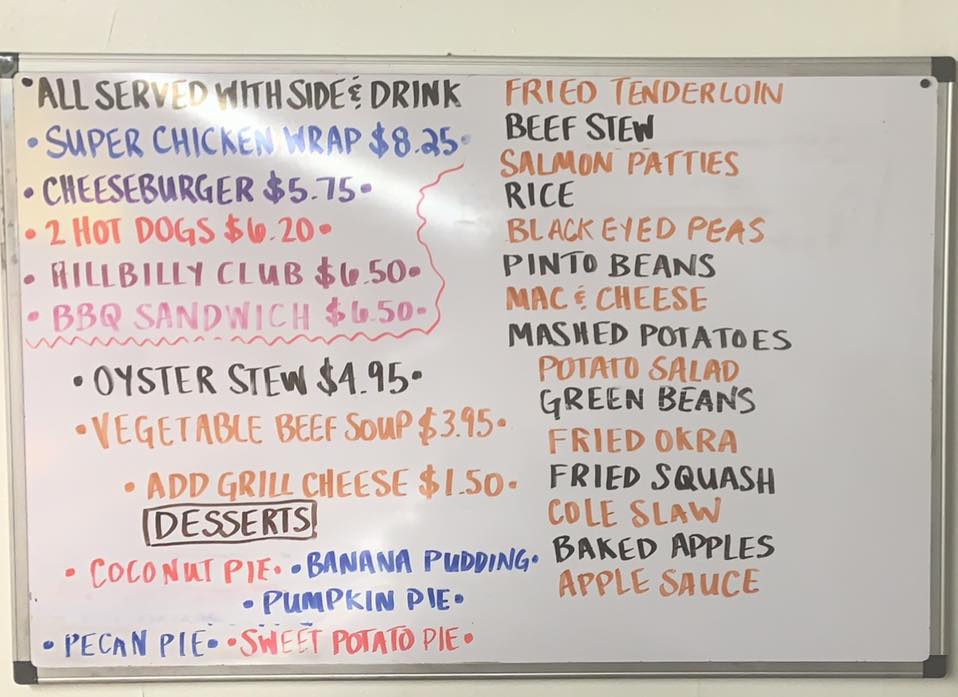 •ALL SERVED WITH SIDE & DRINK
•SUPER CHICKEN WRAP $8.25•
•CHEESEBURGER $5.75•
•2 HOT DOGS $6.20•
•HILLBILLY CLUB $6.50•
•BBQ SANDWICH $6.50•
•OYSTER STEW $4.95•
•VEGETABLE BEEF SOUP $3.95•
•ADD GRILL CHEESE $1.50•
DESSERTS
•COCONUT PIE• •BANANA PUDDING•
•PUMPKIN PIE•
•PECAN PIE• •SWEET POTATO PIE•
FRIED TENDERLOIN
BEEF STEW
SALMON PATTIES
RICE
BLACK EYED PEAS
PINTO BEANS
MAC & CHEESE
MASHED POTATOES
POTATO SALAD
GREEN BEANS
FRIED OKRA
FRIED SQUASH
COLE SLAW
BAKED APPLES
APPLE SAUCE